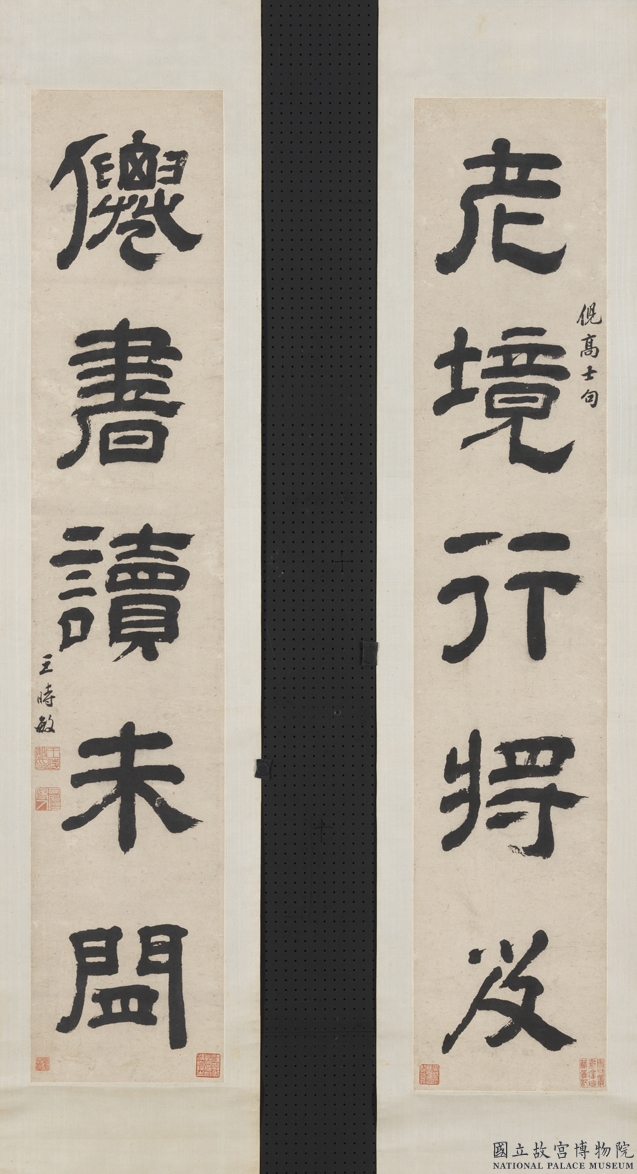 老境行將及
倪高士句
僊書讀未
王時敏
國立故宮博物院
NATIONAL PALACE MUSEUM